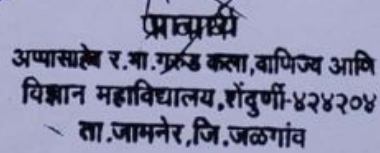 प्राचार्य
अप्पासाहेब र.भा.गरूड कला,वाणिज्य आणि
विज्ञान महाविद्यालय,शेंदुर्णी-४२४२०४
ता.जामनेर,जि.जळगांव